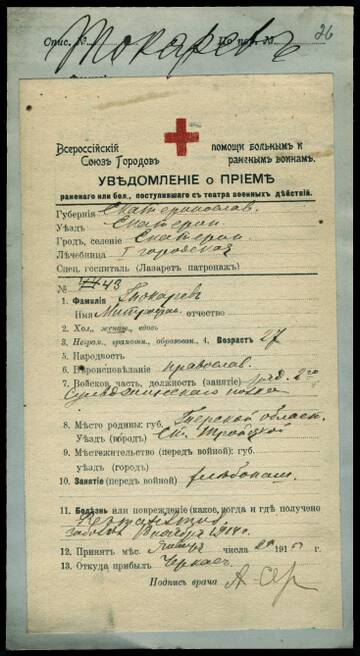 Спис. № По пор. № 26
Токаревъ
Всероссійскій помощи больнымъ и
Союзъ Городовъ раненымъ воинамъ.
УВѢДОМЛЕНІЕ о ПРІЕМѢ
раненаго или бол., поступившаго съ театра военныхъ дѣйствій.
Губернія Екатеринослав.
Уѣздъ Екатерин.
Гродъ, селеніе Екатерин.
Лѣчебница I городская
Спец. госпиталь (Лазаретъ патронажъ)
№ 43
1. Фамилія Токаревъ
Имя Митрофан отчество
2. Хол., женат., вдовъ
3. Неграм., грамотн., образован. 4. Возрастъ 27
5. Народность
6. Вѣроисповѣданіе православ.
7. Войсков. часть, должность (занятіе) ряд. 2го
полка
8. Мѣсто родины: губ. Терской област.
Уѣздъ (городъ) ст. Троицкой
9. Мѣстожительство (передъ войной): губ.
уѣздъ (городъ)
10. Занятіе (передъ войной) хлѣбопаш.
11. Болѣзнь или поврежденіе (какое, когда и гдѣ получено
заболѣл ноября 1914 г.
12. Принятъ мѣс. Январь числа 191 г.
13. Откуда прибылъ Черкас.
Подпись врача